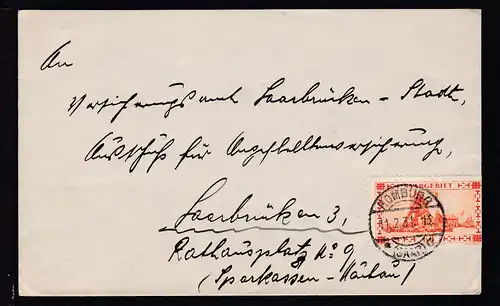 An
Versicherungsamt Saarbrücken - Stadt,
Ausschuß für Angestelltenversicherung,
Saarbrücken 3,
Rathausplatz No 9
(Sparkassen-Neubau)
SAARGEBIET
HOMBURG
11.2.31. 18
(SAAR)